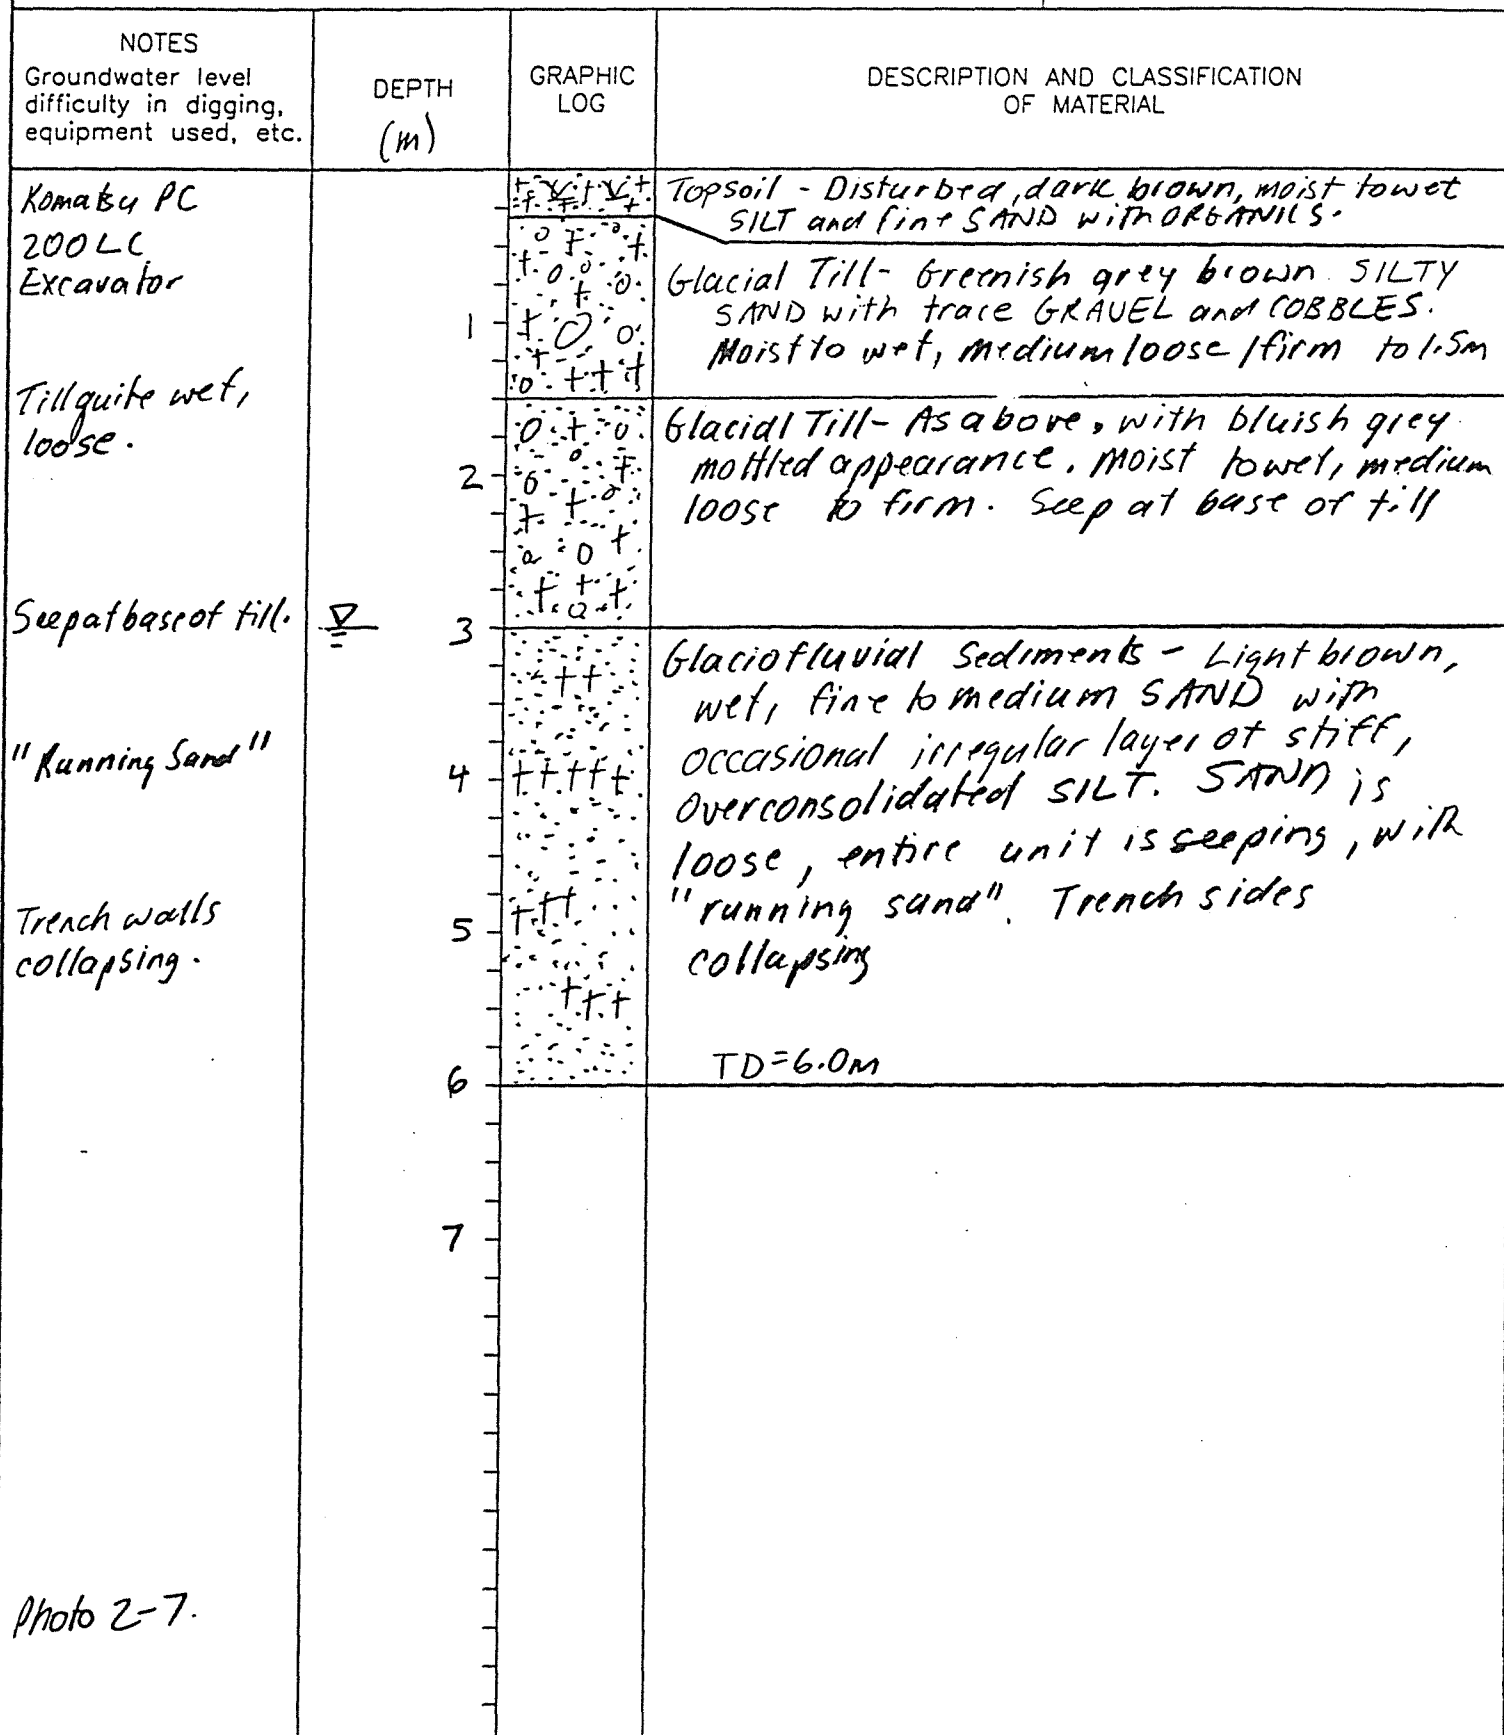 NOTES
Groundwater level
difficulty in digging,
equipment used, etc.
DEPTH
(m)
GRAPHIC
LOG
DESCRIPTION AND CLASSIFICATION
OF MATERIAL
Komatsu PC
200 LC
Excavator
Till quite wet,
loose.
Seep at base of till.
"Running Sand"
Trench walls
collapsing.
Photo 2-7.
1
2
3
4
5
6
7
Topsoil - Disturbed, dark brown, moist to wet
SILT and fine SAND with ORGANICS.
Glacial Till - Greenish grey brown SILTY
SAND with trace GRAVEL and COBBLES.
Moist to wet, medium loose / firm to 1.5m
Glacial Till - As above, with bluish grey
mottled appearance. Moist to wet, medium
loose to firm. Seep at base of till
Glaciofluvial Sediments - Light brown,
wet, fine to medium SAND with
occasional irregular layer of stiff,
overconsolidated SILT. SAND is
loose, entire unit is seeping, with
"running sand". Trench sides
collapsing
TD=6.0m